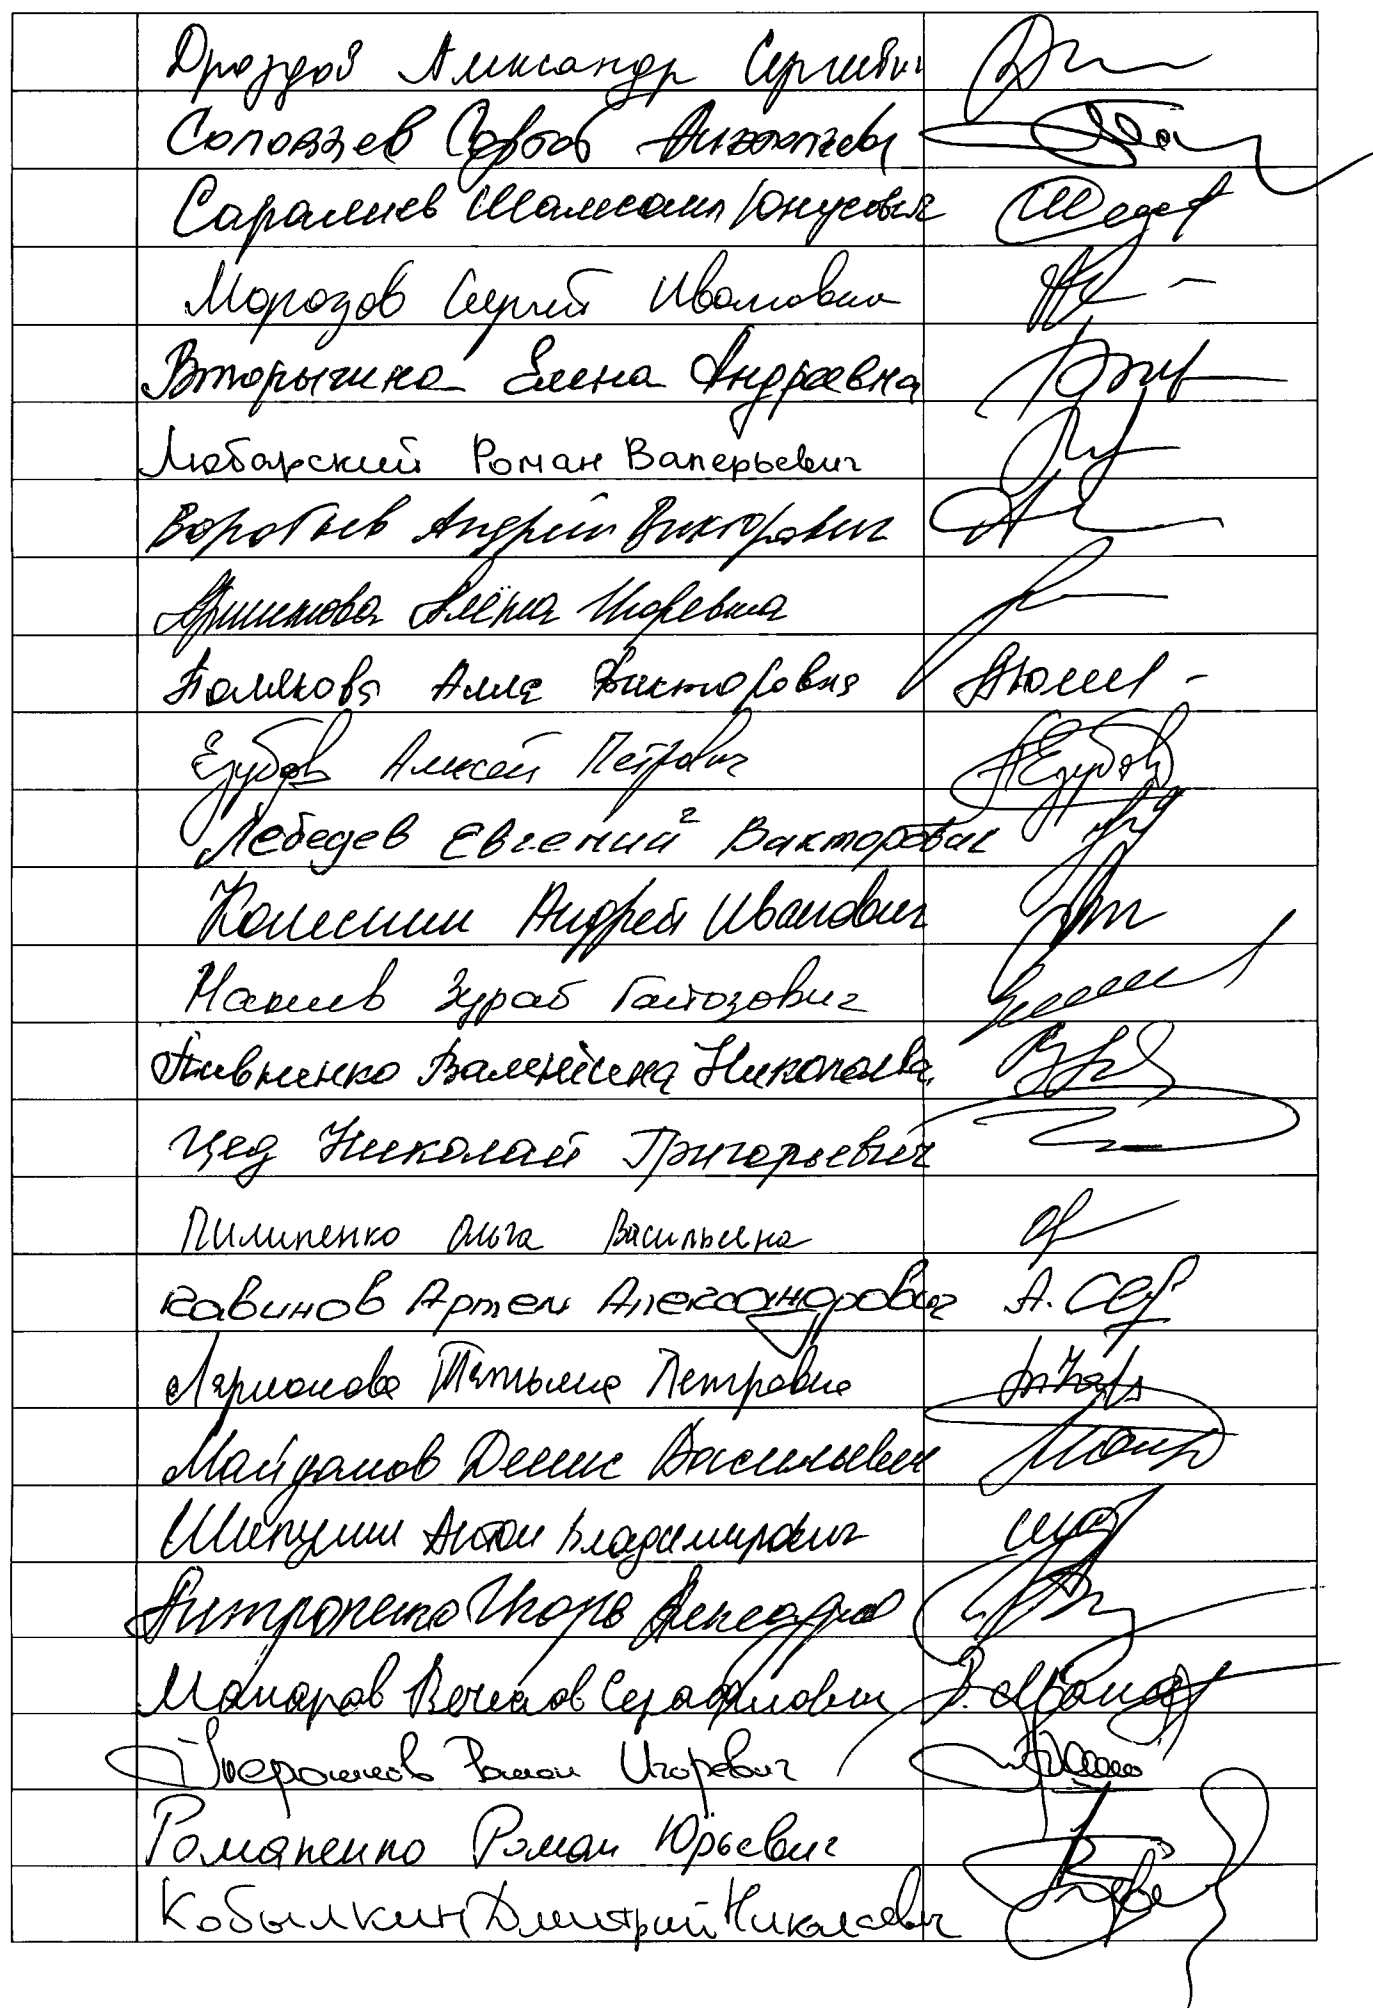 Дроздов Александр Сергеевич
Соловьев Сергей
Саралиев Шамсаил Юнусович
Морозов Сергей Иванович
Вторыгина Елена Андреевна
Любарский Роман Валерьевич
Воробьев Андрей Викторович
Аршинова Алёна Игоревна
Полякова Алла Викторовна
Езубов Алексей Петрович
Лебедев Евгений Викторович
Колесник Андрей Иванович
Макиев Зураб Гайозович
Пивненко Валентина Николаевна
Цед Николай Григорьевич
Пилипенко Ольга Васильевна
Кавинов Артем Александрович
Ларионова Татьяна Петровна
Майданов Денис Васильевич
Шипулин Антон Владимирович
Антропенко Игорь
Макаров Вячеслав Серафимович
Роман Игоревич
Романенко Роман Юрьевич
Кобылкин Дмитрий Николаевич